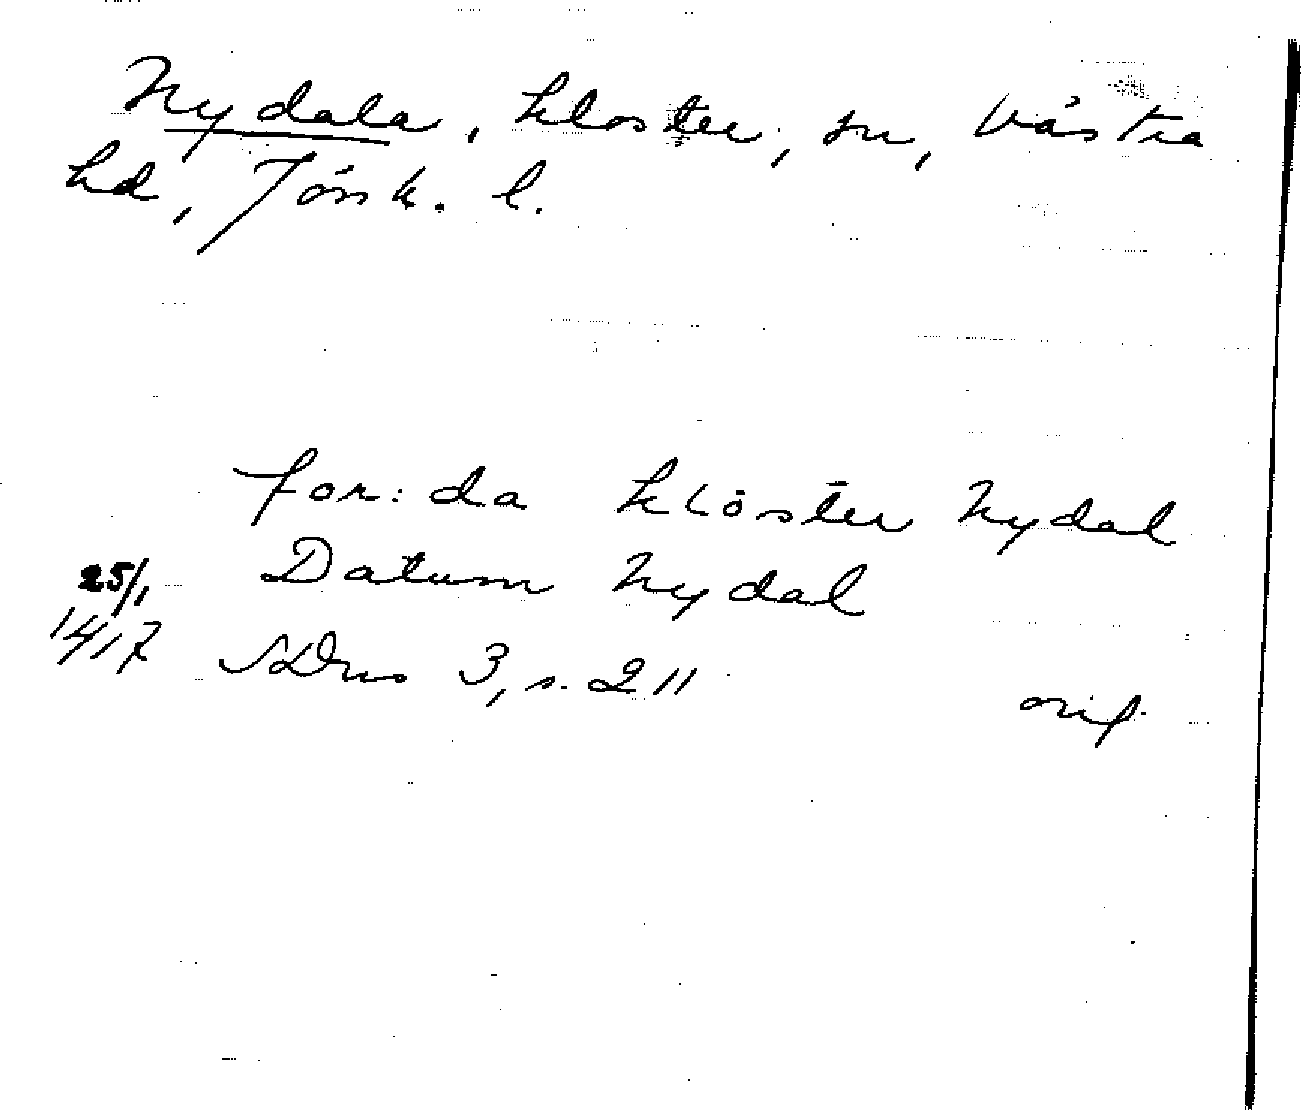 Nydala, kloster, sn, Västra
hd, Jönk. l.
for:da klöster Nydal
25/1 Datum Nydal
1417 SDns 3, s. 211
orig.